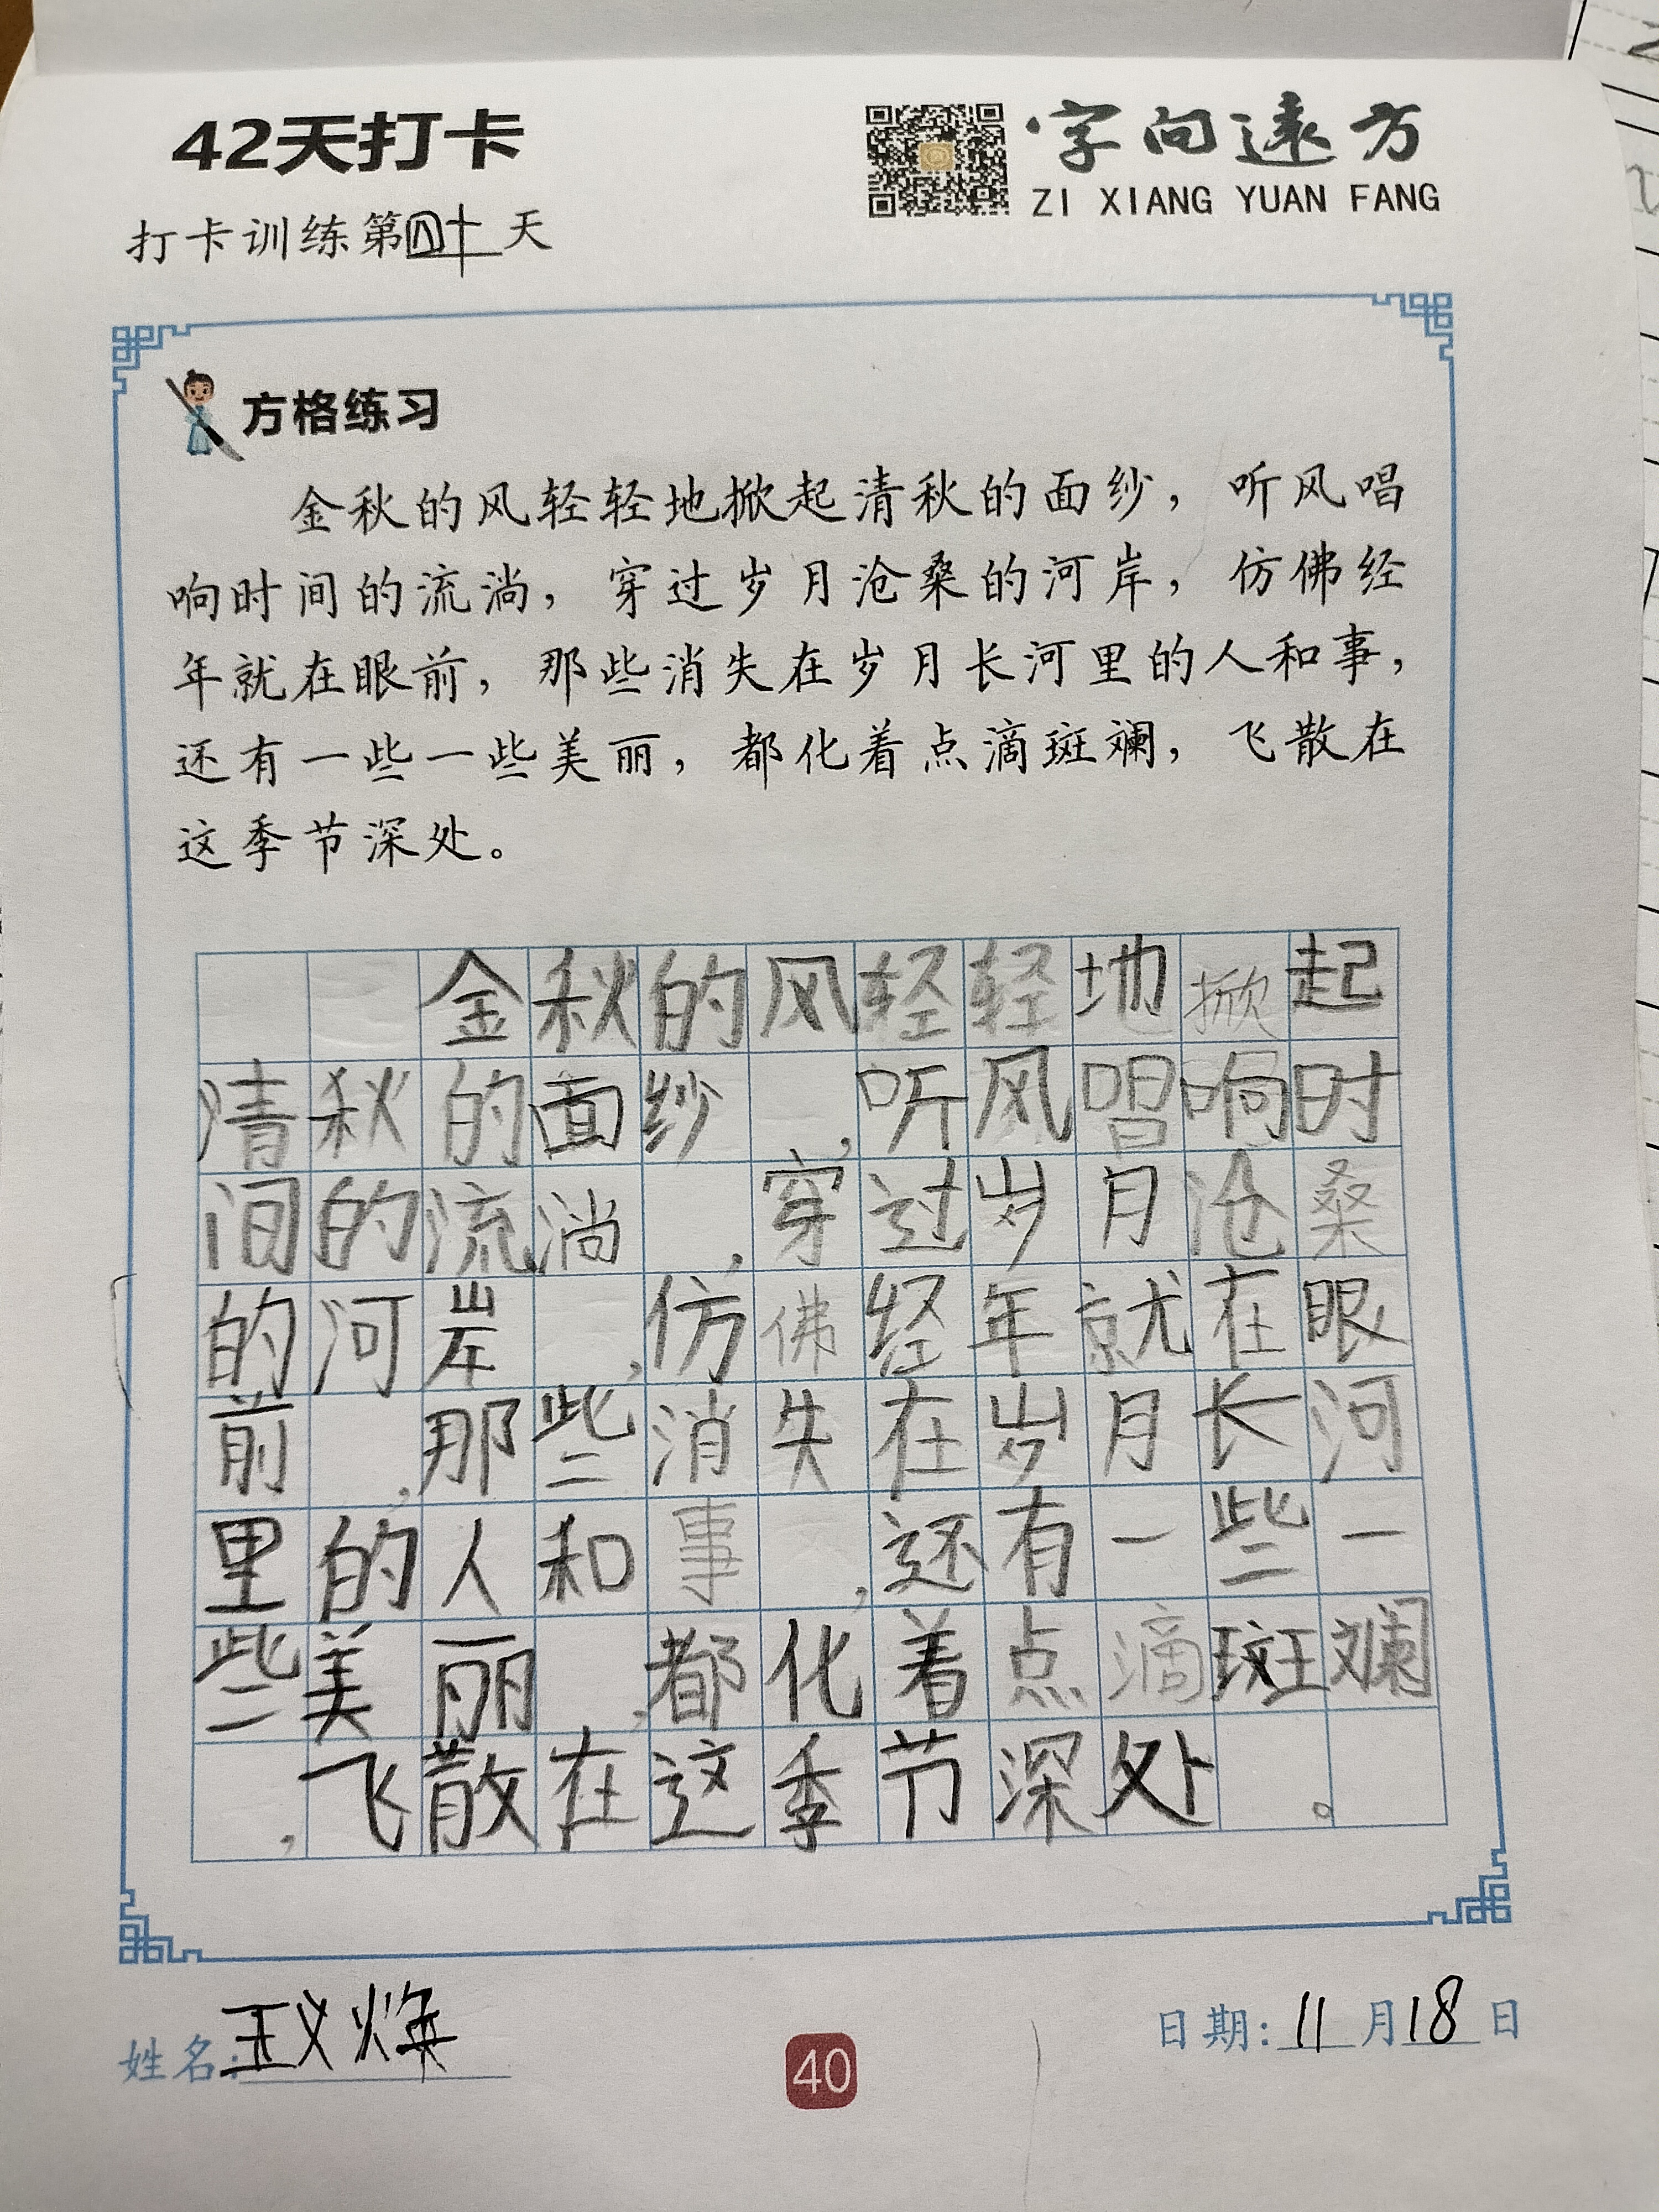 42天打卡
字向远方
ZI XIANG YUAN FANG
打卡训练第四十天
方格练习
金秋的风轻轻地掀起清秋的面纱，听风唱
响时间的流淌，穿过岁月沧桑的河岸，仿佛经
年就在眼前，那些消失在岁月长河里的人和事，
还有一些一些美丽，都化着点滴斑斓，飞散在
这季节深处。
金秋的风轻轻地掀起
清秋的面纱，听风唱响时
间的流淌，穿过岁月沧桑
的河岸，仿佛经年就在眼
前，那些消失在岁月长河
里的人和事，还有一些一
些美丽，都化着点滴斑斓
，飞散在这季节深处。
姓名：王义焕
40
日期：11月18日